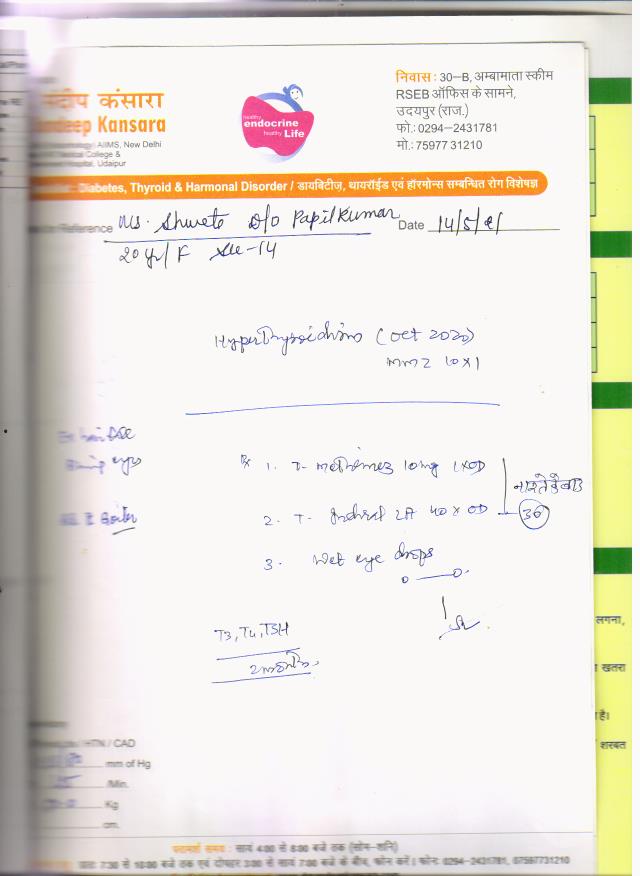 संदीप कंसारा
Sandeep Kansara
AIIMS, New Delhi
College &
Hospital, Udaipur
healthy
endocrine
healthy Life
निवास : 30–B, अम्बामाता स्कीम
RSEB ऑफिस के सामने,
उदयपुर (राज.)
फो.: 0294–2431781
मो.: 75977 31210
Diabetes, Thyroid & Harmonal Disorder / डायबिटीज़, थायरॉईड एवं हॉरमोन्स सम्बन्धित रोग विशेषज्ञ
Reference Ms. Shweta D/o Papil Kumar Date 14/5/21
20 yr/F
Hyperthyroidism (Oct 2020)
MMZ 10 x 1
eyes
Goiter
Rx 1. T. Methimez 10mg 1xOD
नाश्ते के बाद
2. T. Inderal LA 40 x OD
30
3. Wet eye drops
T3, T4, TSH
/ HTN / CAD
mm of Hg
/Min.
Kg
cm.
लगना,
खतरा
है।
शरबत
परामर्श समय : सायं 4:00 से 8:00 बजे तक (सोम-शनि)
प्रातः 7:30 से 10:00 बजे तक एवं दोपहर 3:00 से सायं 7:00 बजे के बीच, फोन करें। फोन: 0294-2431781, 07597731210